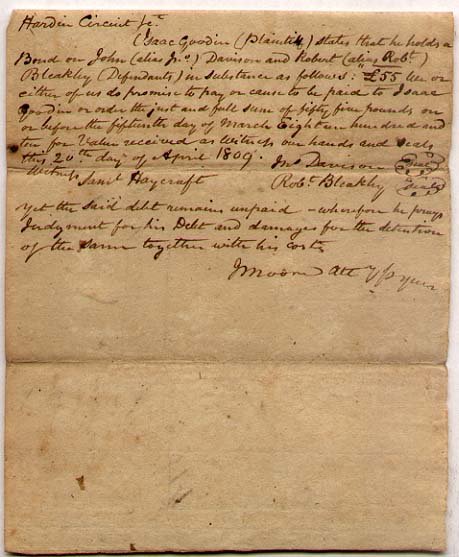 Hardin Circuit Sc.
Isaac Goodin (Plaintiff) states that he holds a
Bond on John (alias Jno.) Davison and Robert (alias Robt.)
Bleakley (Defendants) in substance as follows: £55 We or
either of us do promise to pay or cause to be paid to Isaac
Goodin or order the just and full sum of fifty five pounds on
or before the fifteenth day of March Eighteen hundred and
ten for value received as witness our hands and seals
this 20th day of April 1809. Jno Davison Seal
Witness Robt. Bleakley Seal
Saml Haycraft
yet the said debt remains unpaid - wherefore he prays
Judgment for his Debt and damages for the detention
of the same together with his costs
J Moore Att